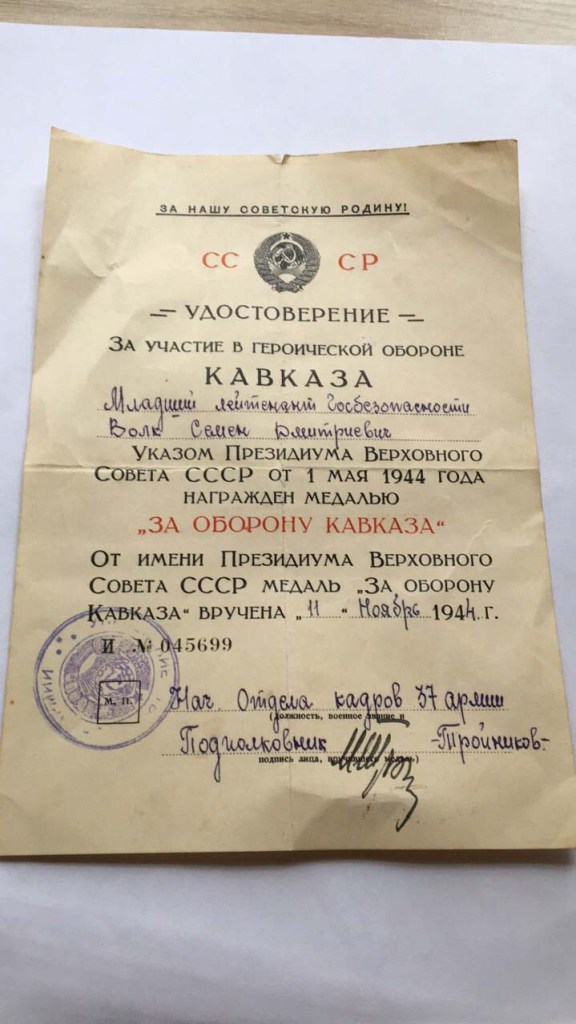 ЗА НАШУ СОВЕТСКУЮ РОДИНУ!
СССР
УДОСТОВЕРЕНИЕ
ЗА УЧАСТИЕ В ГЕРОИЧЕСКОЙ ОБОРОНЕ
КАВКАЗА
Младший лейтенант Госбезопасности
Волк Семен Дмитриевич
УКАЗОМ ПРЕЗИДИУМА ВЕРХОВНОГО
СОВЕТА СССР ОТ 1 МАЯ 1944 ГОДА
НАГРАЖДЕН МЕДАЛЬЮ
„ЗА ОБОРОНУ КАВКАЗА“
ОТ ИМЕНИ ПРЕЗИДИУМА ВЕРХОВНОГО
СОВЕТА СССР МЕДАЛЬ „ЗА ОБОРОНУ
КАВКАЗА“ ВРУЧЕНА „11“ Ноябрь 1944 г.
И № 045699
М. П.
Нач. Отдела кадров 37 армии
(должность, военное звание и
Подполковник -Тройников-
подпись лица, вручившего медаль)